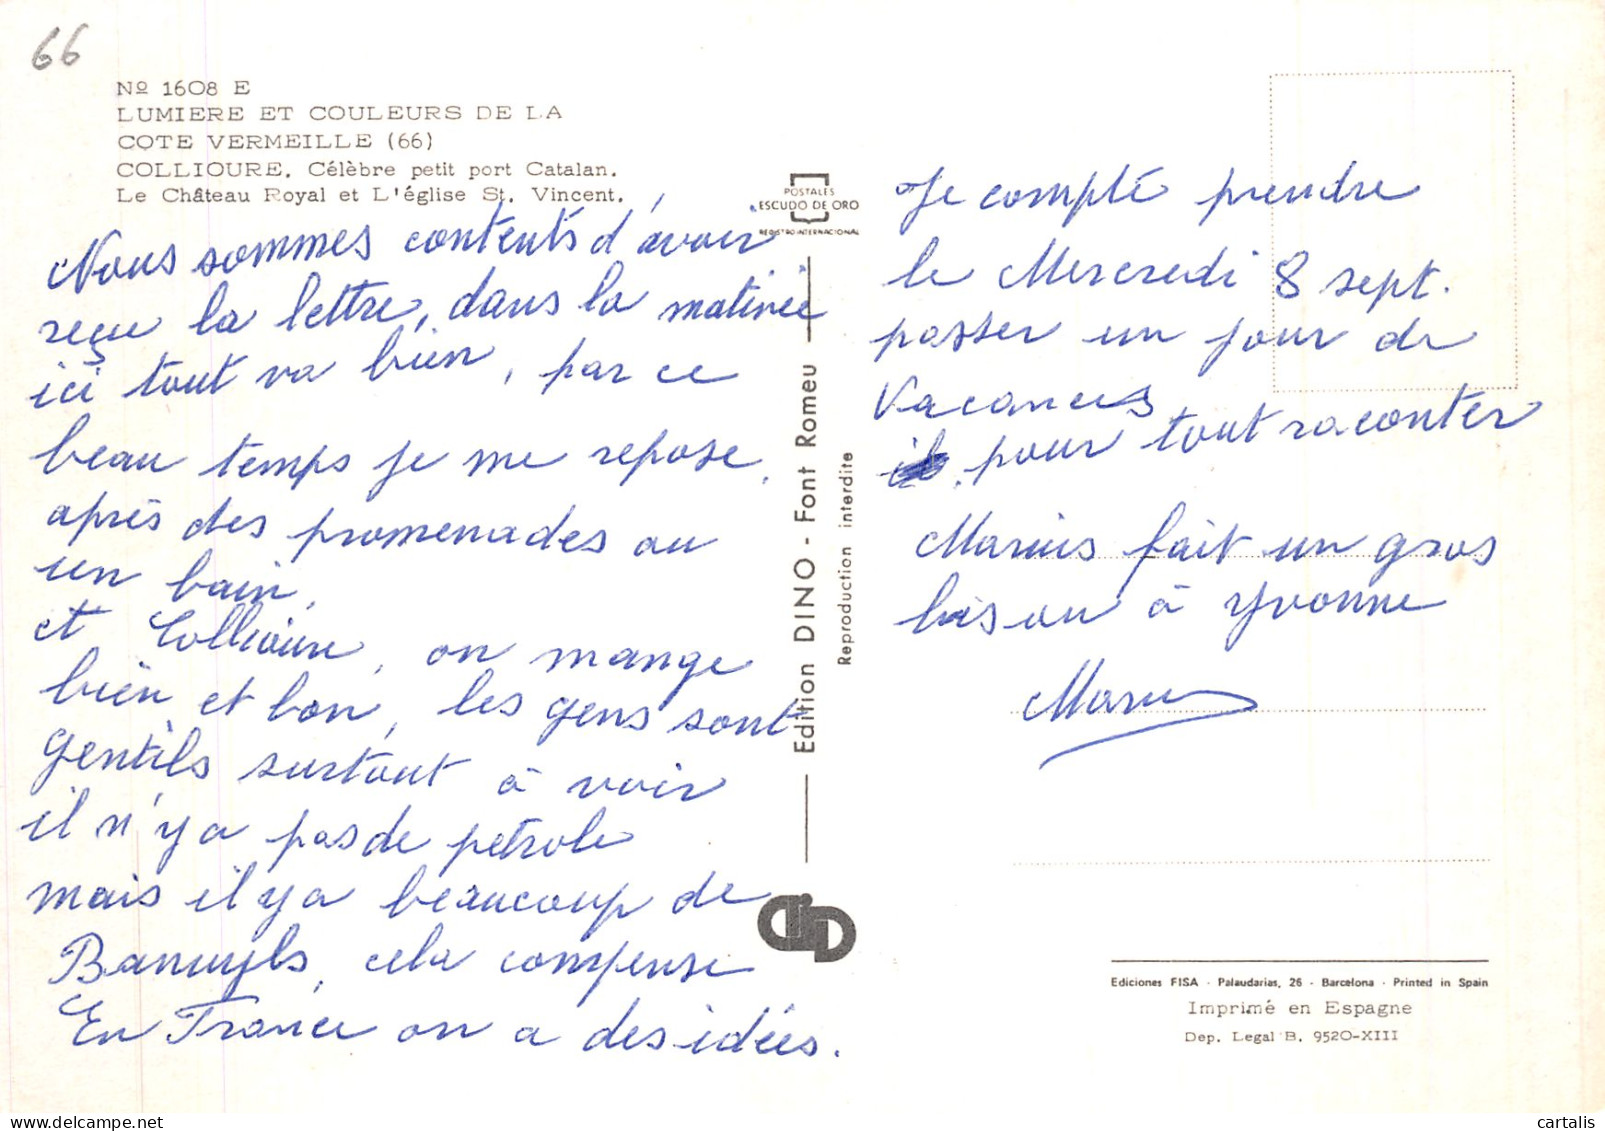 66
Nº 1608 E
LUMIERE ET COULEURS DE LA
COTE VERMEILLE (66)
COLLIOURE. Célèbre petit port Catalan.
Le Château Royal et L'église St. Vincent.
Nous sommes contents d'avoir
reçu la lettre, dans la matinée
ici tout va bien, par ce
beau temps je me repose,
après des promenades ou
un bain,
et Collioure, on mange
bien et bon, les gens sont
gentils surtout à voir
il n'y a pas de petrole
mais il y a beaucoup de
Banuyls, cela compense
En France on a des idées.
POSTALES
ESCUDO DE ORO
REGISTRO INTERNACIONAL
Edition DINO - Font Romeu
Reproduction interdite
Je compte prendre
le Mercredi 8 sept.
passer un jour de
Vacances
pour tout raconter
Marius fait un gros
bisou à Yvonne
Marius
Ediciones FISA - Palaudarias, 26 - Barcelona - Printed in Spain
Imprimé en Espagne
Dep. Legal B. 9520-XIII
cartalis